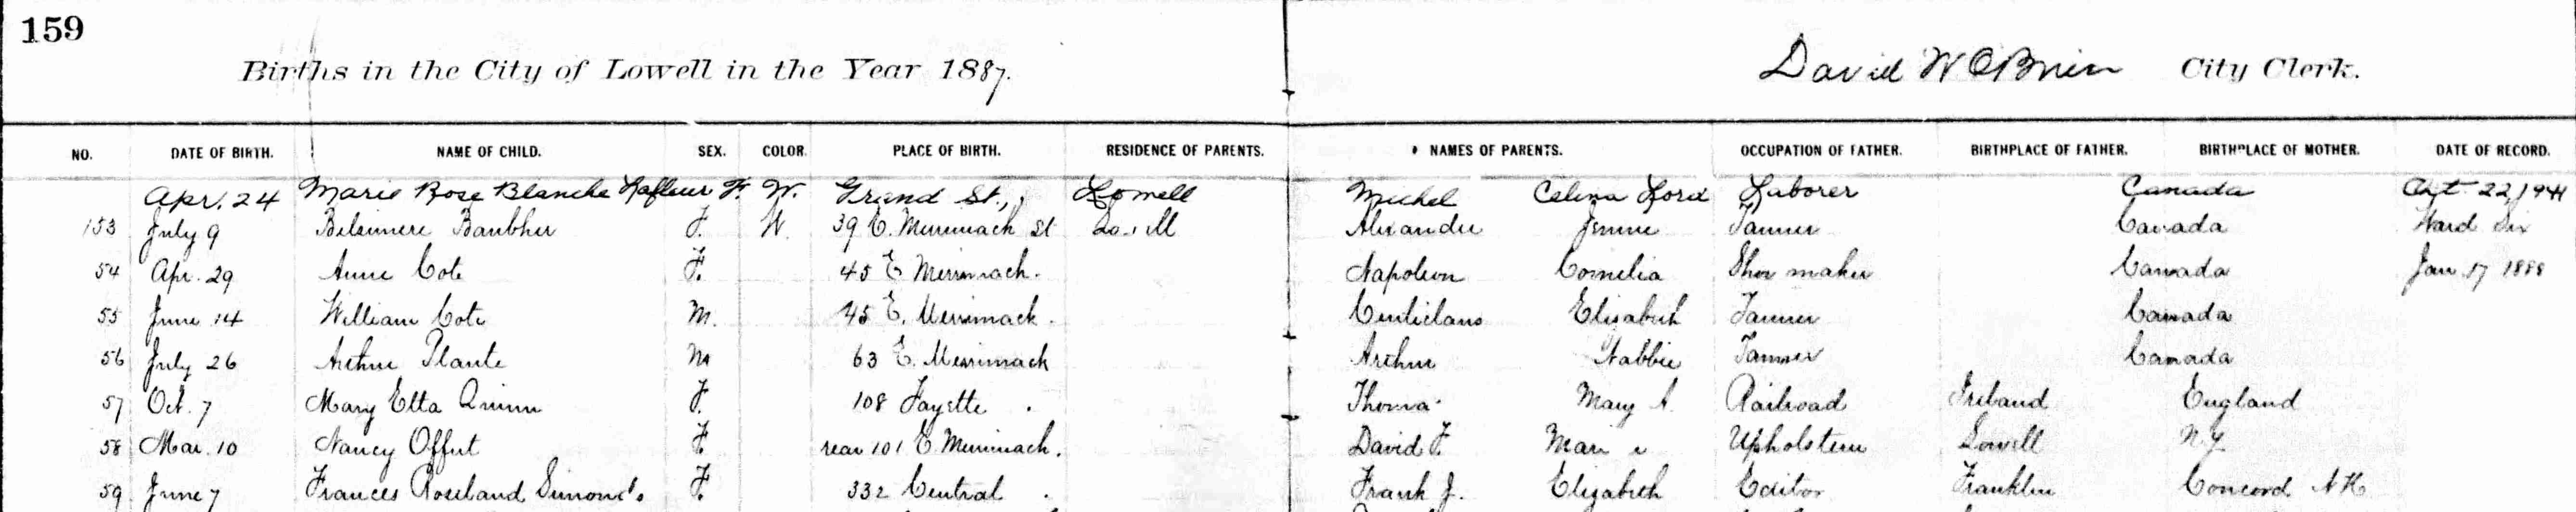 159
Births in the City of Lowell in the Year 1887. David W O'Brien City Clerk.
NO. DATE OF BIRTH. NAME OF CHILD. SEX. COLOR. PLACE OF BIRTH. RESIDENCE OF PARENTS. NAMES OF PARENTS. OCCUPATION OF FATHER. BIRTHPLACE OF FATHER. BIRTHPLACE OF MOTHER. DATE OF RECORD.
Apr. 24 Marie Rose Blanche Lafleur F. W. Grand St., Lowell Michel Celina Lord Laborer Canada 22, 1941
153 July 9 F. W. 39 E. Merrimack St Lowell Alexander Jennie Tanner Canada Ward Six
54 Apr. 29 Anne Cote F. 45 E Merrimack. Napoleon Cornelia Shoe maker Canada Jan 17 1888
55 June 14 William Cote M. 45 E. Merrimack. Elizabeth Tanner Canada
56 July 26 Arthur Plante M 63 E. Merrimack Arthur Nabbie Tanner Canada
57 Oct. 7 Mary Etta Quinn F. 108 Fayette. Thomas Mary A. Railroad Ireland England
58 Mar. 10 Nancy Offut F. rear 101 E. Merrimack. David F. Upholsterer Lowell N.Y.
59 June 7 Frances Roseland Simonds F. 332 Central. Frank J. Elizabeth Editor Franklin Concord N H